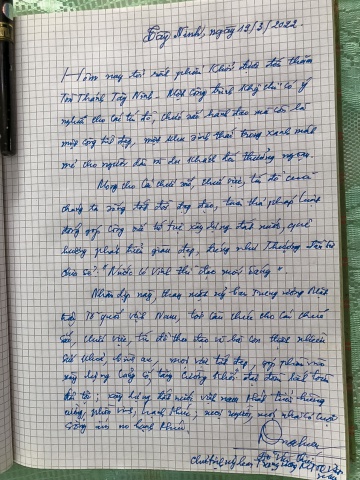 Tây Ninh, ngày 19/3/2022
Hôm nay tôi rất phấn khởi được đến thăm
Tòa Thánh Tây Ninh - Một công trình kỳ có ý
nghĩa cho các tín đồ, chức sắc hành đạo mà còn là
một công tốt đẹp, một khu sinh thái trong xanh mát
mẻ cho người dân và du khách đến thưởng ngoạn.
Mong các chức sắc, chức việc, tín đồ
chúng ta sống tốt đời đẹp đạo, tuân thủ pháp luật
đóng góp công sức trí tuệ xây dựng đất nước, quê
hương phát triển giàu đẹp, đúng như Thượng
"Nước có vinh thì đạo mới sáng"
Nhân dịp này, thay mặt Ủy ban Trung ương Mặt
trận Tổ quốc Việt Nam, tôi cầu chúc cho các chức
sắc, chức việc, tín đồ theo đạo và bà con thật nhiều
sức khỏe, bình an, mọi việc tốt đẹp, góp phần vào
xây dựng củng cố, tăng cường khối đại đoàn kết toàn
dân tộc; xây dựng đất nước Việt Nam phát triển hùng
cường, phồn vinh, hạnh phúc, mọi người, mọi nhà có cuộc
sống ấm no hạnh phúc.
Chủ tịch Ủy ban Trung ương MTTQ Việt
Nam